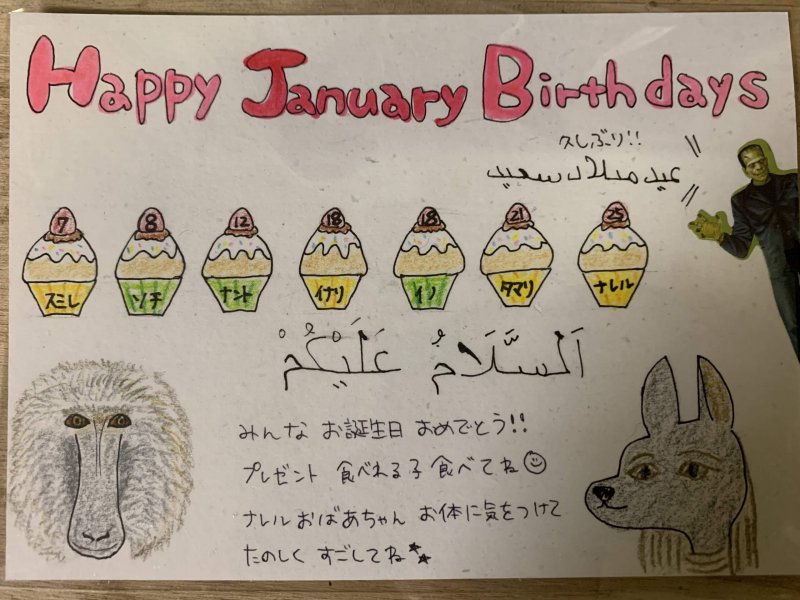 Happy January Birthdays
久しぶり!!
عيد ميلاد سعيد
7 8 12 18 18 21 25
スミレ ソチ ナント イナリ イソ タマリ ナレル
اَلسَّلَامُ عَلَيْكُمْ
みんな お誕生日 おめでとう!!
プレゼント 食べれる子 食べてね☺
ナレルおばあちゃん お体に気をつけて
たのしく すごしてね★★